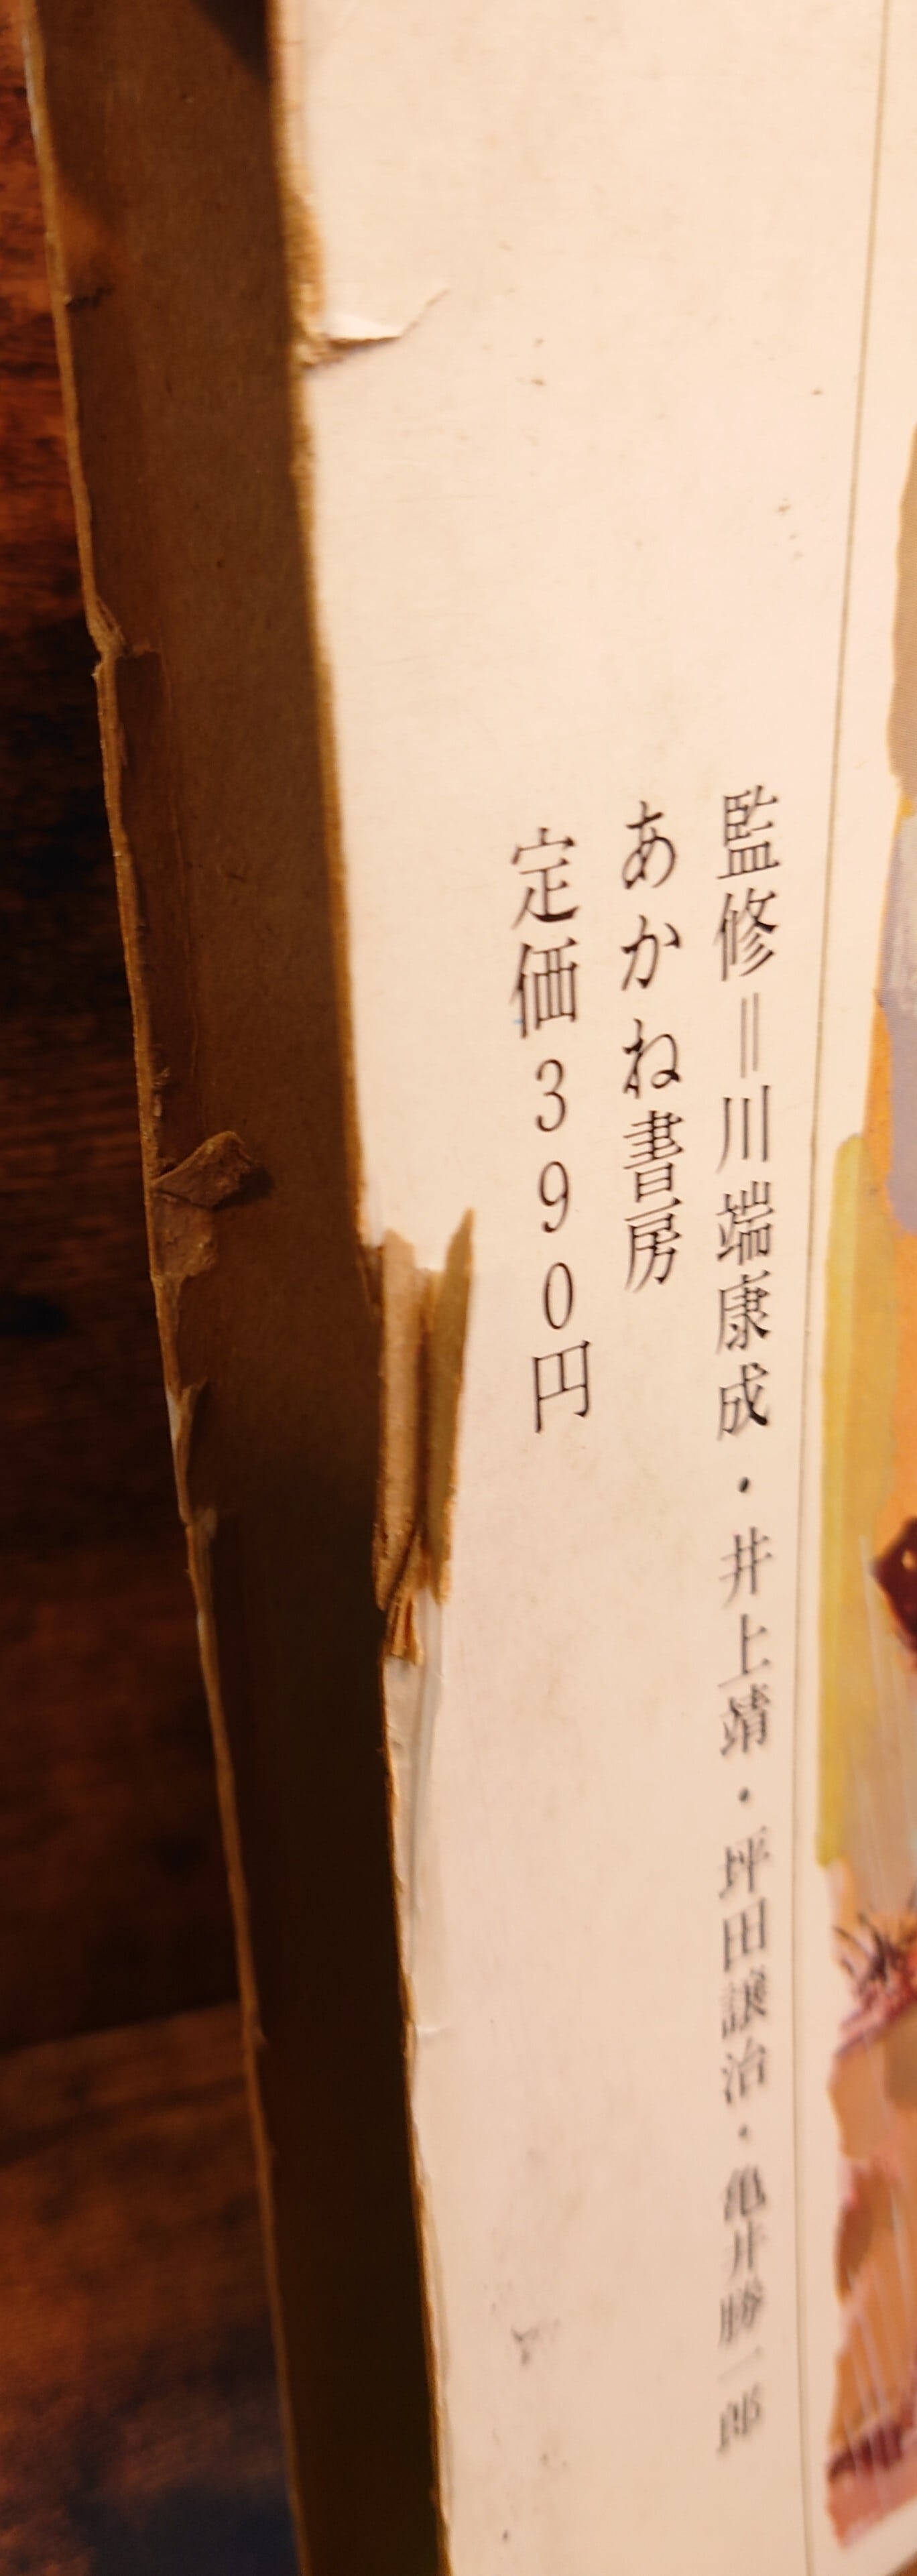 監修＝川端康成・井上靖・坪田譲治・亀井勝一郎
あかね書房
定価390円